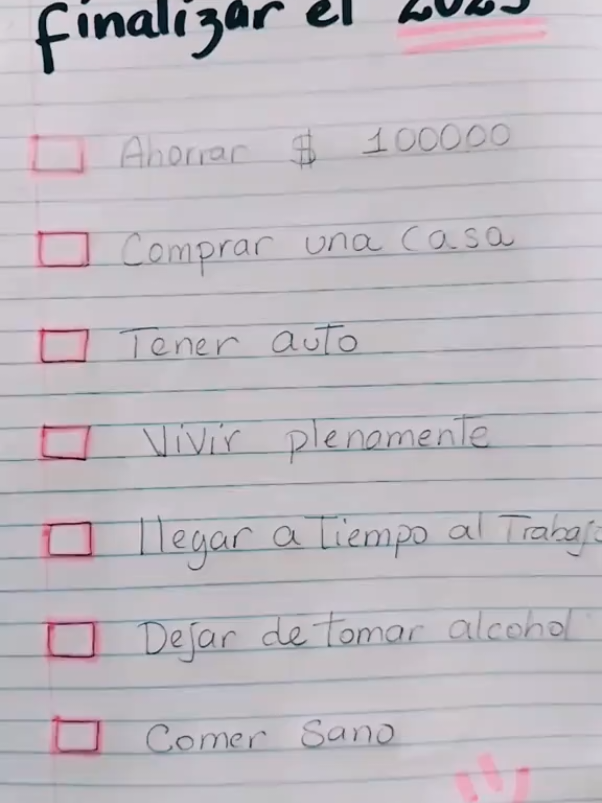 finalizar el 2023
Ahorrar $ 100000
Comprar una casa
Tener auto
Vivir plenamente
llegar a Tiempo al Trabajo
Dejar de tomar alcohol
Comer Sano